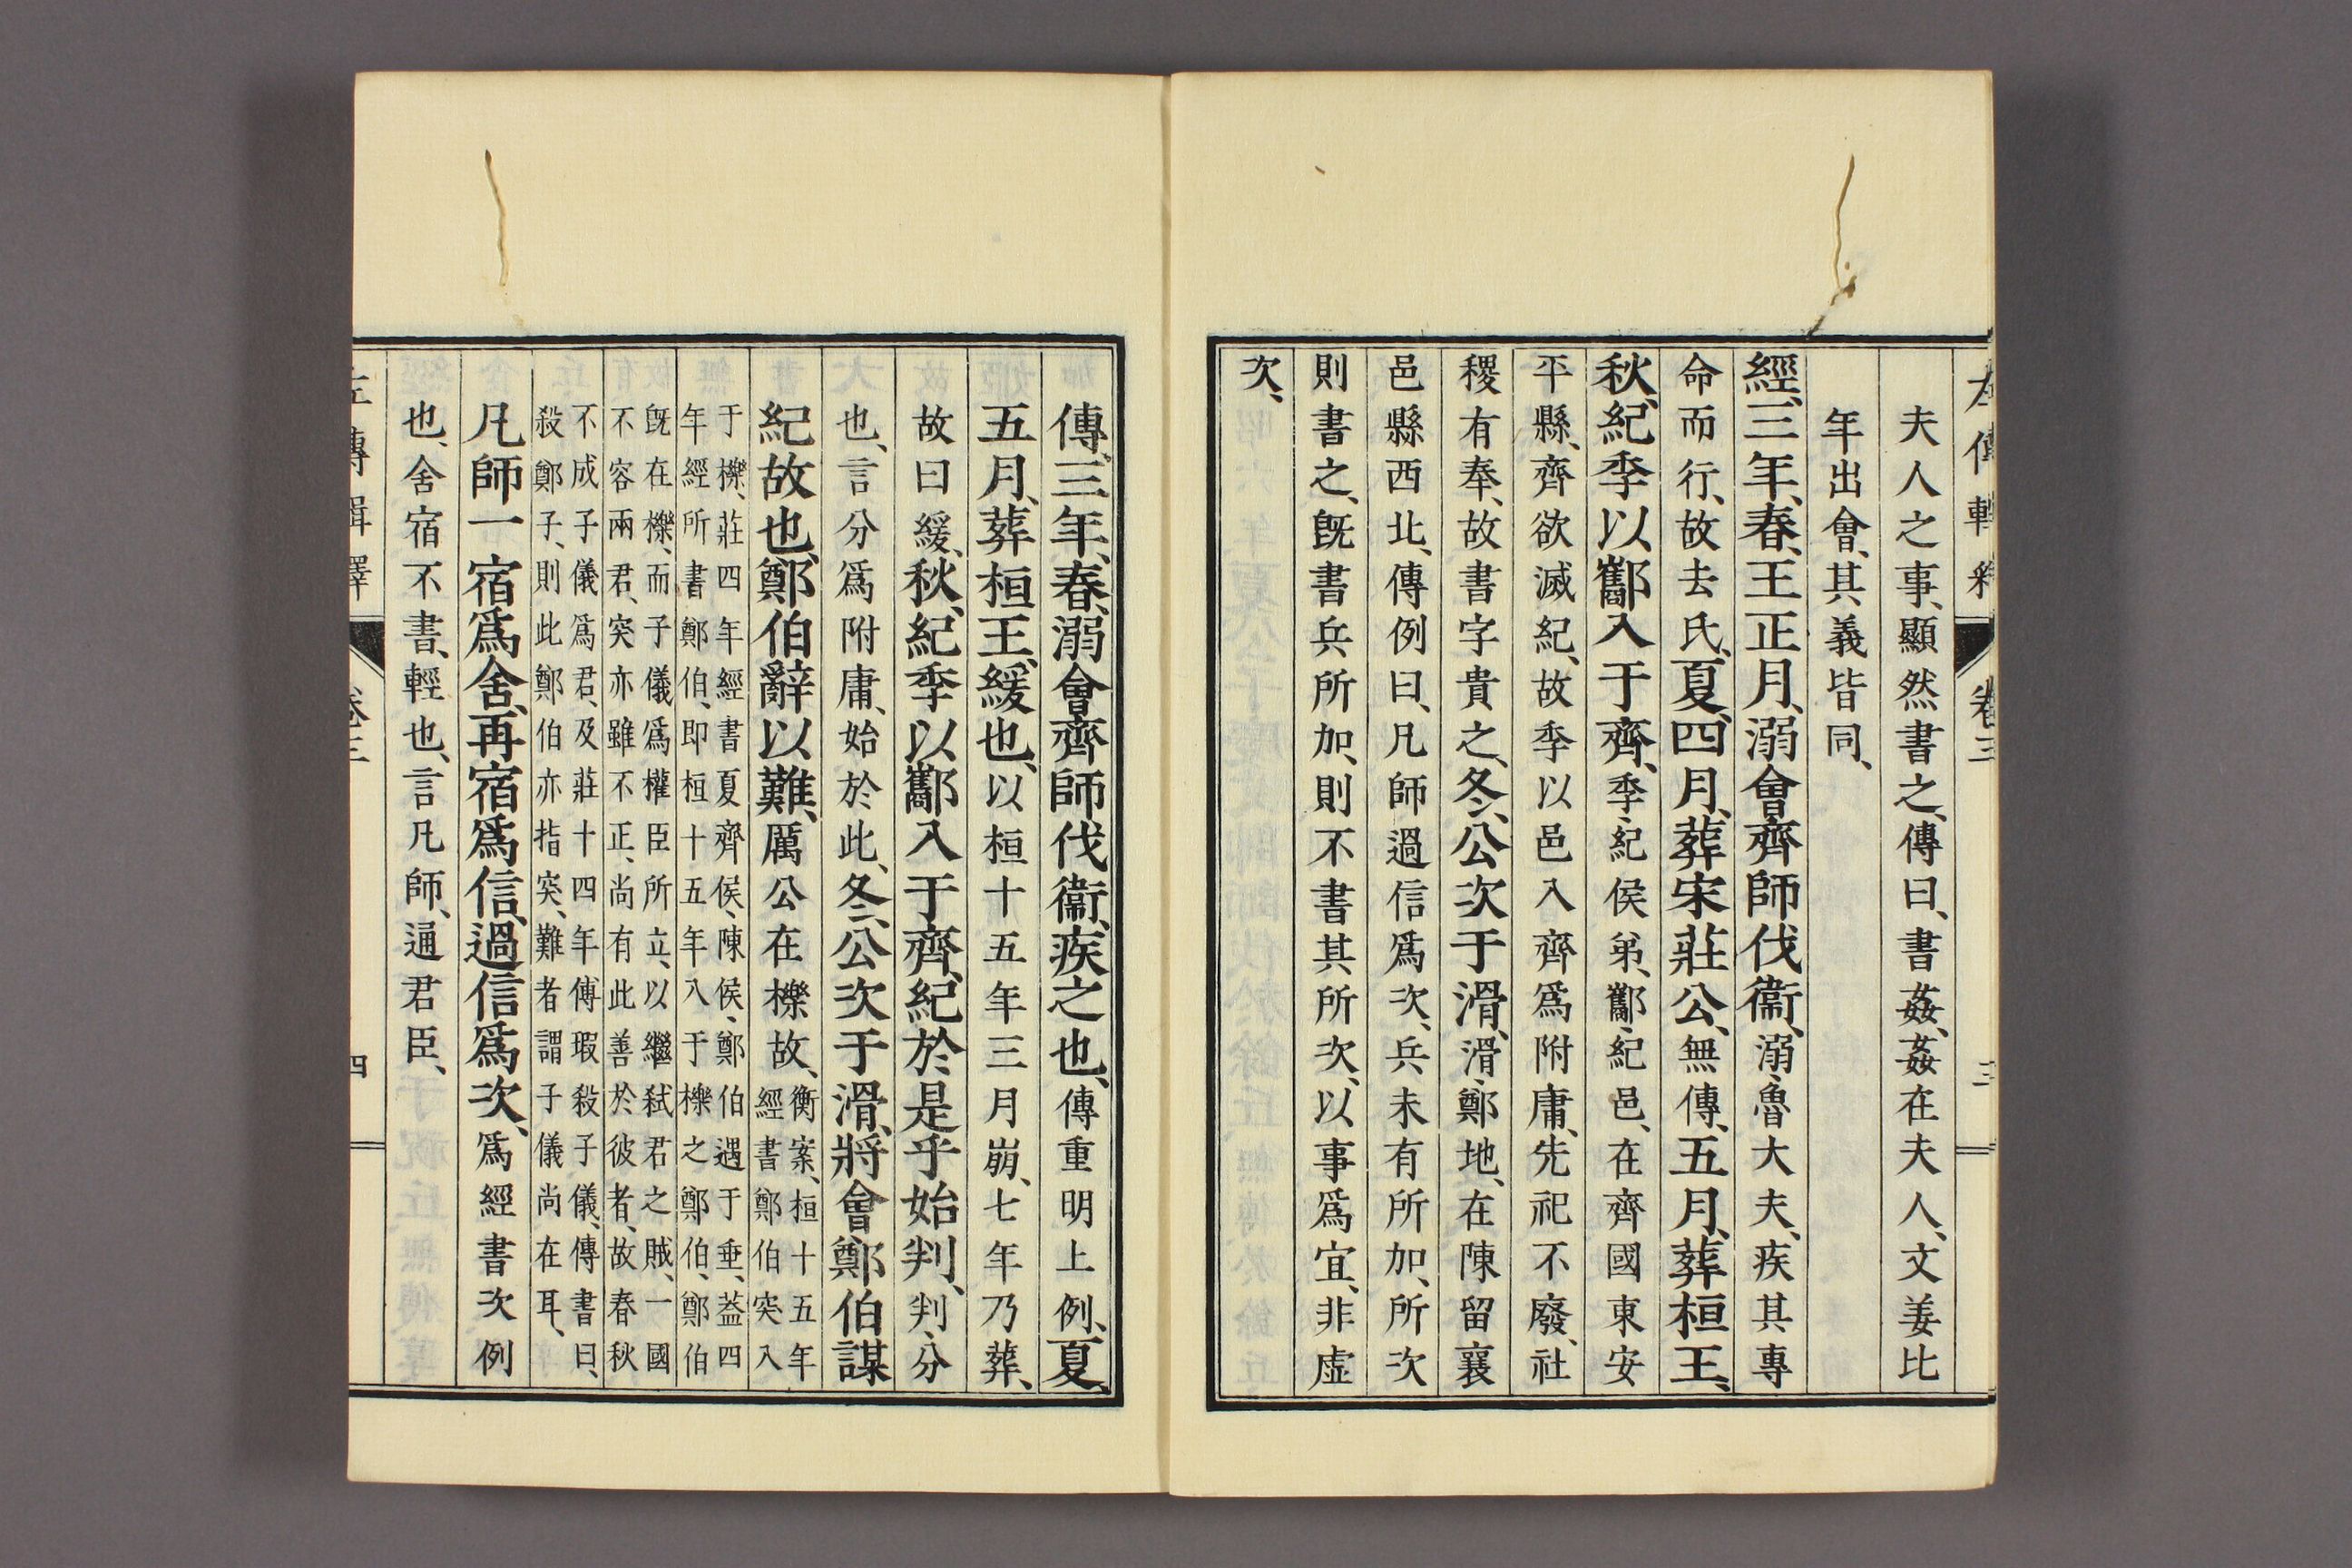 左傳輯釋 卷三 三
夫人之事、顯然書之、傳曰、書姦、姦在夫人、文姜比
年出會、其義皆同、
經、三年、春、王正月、溺會齊師伐衞、溺、魯大夫、疾其專
命而行、故去氏、夏、四月、葬宋莊公、無傳、五月、葬桓王、
秋、紀季以酅入于齊、季、紀侯弟、酅、紀邑、在齊國東安
平縣、齊欲滅紀、故季以邑入齊爲附庸、先祀不廢、社
稷有奉、故書字貴之、冬、公次于滑、滑、鄭地、在陳留襄
邑縣西北、傳例曰、凡師過信爲次、兵未有所加、所次
則書之、既書兵所加、則不書其所次、以事爲宜、非虛
次、
傳、三年、春、溺會齊師伐衞、疾之也、傳重明上例、夏、
五月、葬桓王、緩也、以桓十五年三月崩、七年乃葬、
故曰緩、秋、紀季以酅入于齊、紀於是乎始判、判、分
也、言分爲附庸、始於此、冬、公次于滑、將會鄭伯謀
紀故也、鄭伯辭以難、厲公在櫟故、衡案、桓十五年
經書鄭伯突入
于櫟、莊四年經書夏齊侯、陳侯、鄭伯遇于垂、葢四
年經所書鄭伯、即桓十五年入于櫟之鄭伯、鄭伯
既在櫟、而子儀爲權臣所立、以繼弑君之賊、一國
不容兩君、突亦雖不正、尚有此善於彼者、故春秋
不成子儀爲君、及莊十四年傅瑕殺子儀、傳書曰、
殺鄭子、則此鄭伯亦指突、難者謂子儀尚在耳、
凡師一宿爲舍、再宿爲信、過信爲次、爲經書次例
也、舍宿不書、輕也、言凡師、通君臣、
左傳輯釋 卷三 四